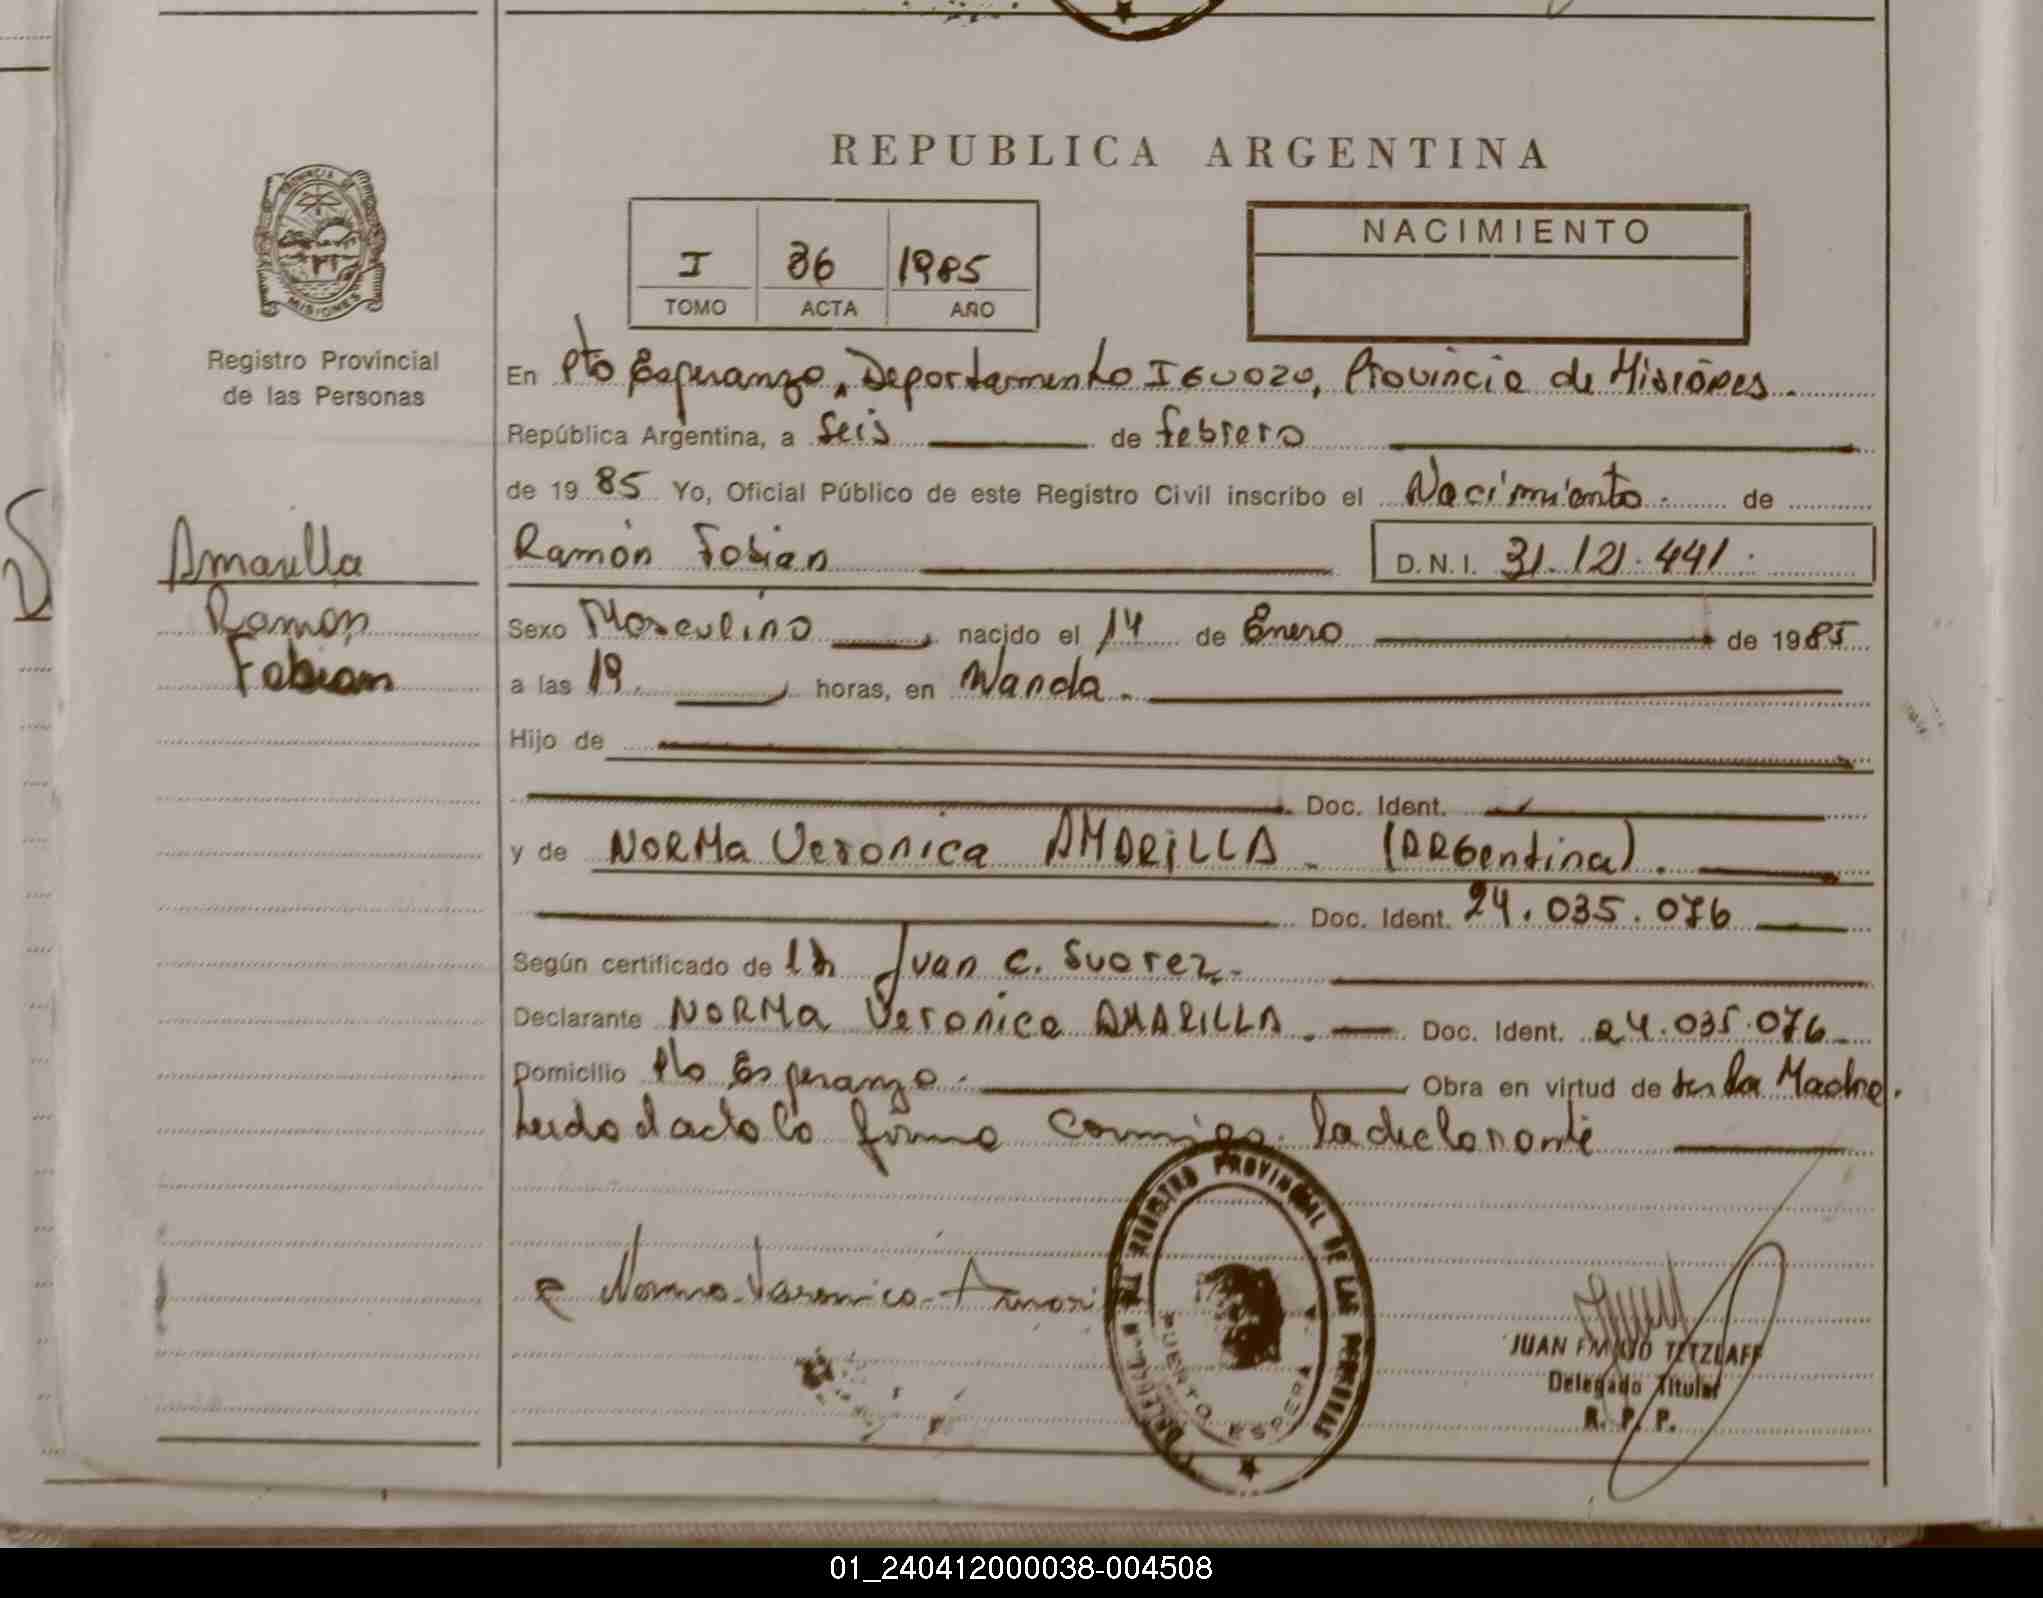 REPUBLICA ARGENTINA
PROVINCIA DE MISIONES
Registro Provincial
de las Personas
I 36 1985
TOMO ACTA AÑO
NACIMIENTO
En Pto Esperanza, Departamento IGUAZU, Provincia de Misiones.
República Argentina, a seis de febrero
de 1985 Yo, Oficial Público de este Registro Civil inscribo el Nacimiento. de
Amarilla
Ramón
Fabian
Ramón Fabian D.N.I. 31.121.441.
Sexo Masculino, nacido el 14 de Enero de 1985
a las 19, horas, en Wanda.
Hijo de
Doc. Ident.
y de NORMa Veronica AMARiLLA. (ARGentina).
Doc. Ident. 24.035.076
Según certificado de Juan C. Suarez.
Declarante NORMa Veronica AMARILLA. Doc. Ident. 24.035.076
Domicilio Pto Esperanza. Obra en virtud de ser la Madre.
Leido el acta la firma conmigo la declarante
Norma Veronica Amari
REGISTRO PROVINCIAL DE LAS PERSONAS
PUERTO ESPERA
JUAN EMILIO TETZLAFF
Delegado Titular
R. P. P.
01_240412000038-004508